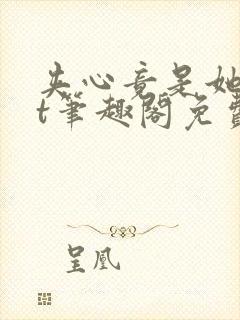 失心竟是她
t笔趣阁免费
呈凰